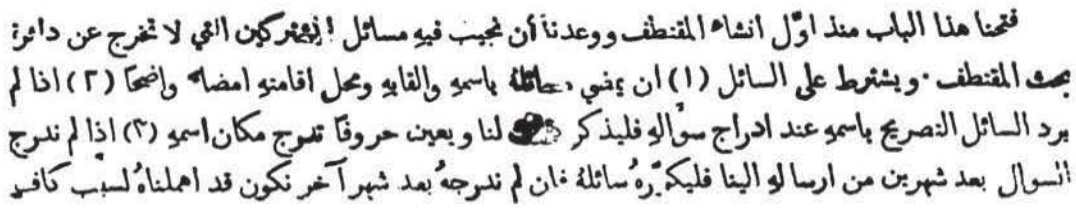 فتحنا هذا الباب منذ اوّل انشاء المقتطف ووعدنا أن نجيب فيهِ مسائل المشتركين التي لا تخرج عن دائرة
بحث المقتطف . ويشترط على السائل (١) ان يمضي مسائلهُ باسمهِ والقابهِ ومحل اقامتهِ امضاءً واضحًا (٢) اذا لم
يرد السائل التصريح باسمهِ عند ادراج سوَّالهِ فليذكر لنا ويعين حروفًا تدرج مكان اسمهِ (٣) اذا لم ندرج
السوال بعد شهرين من ارسالهِ الينا فليكرّرهُ سائلهُ فان لم ندرجهُ بعد شهر آخر نكون قد اهملناهُ لسبب كافٍ